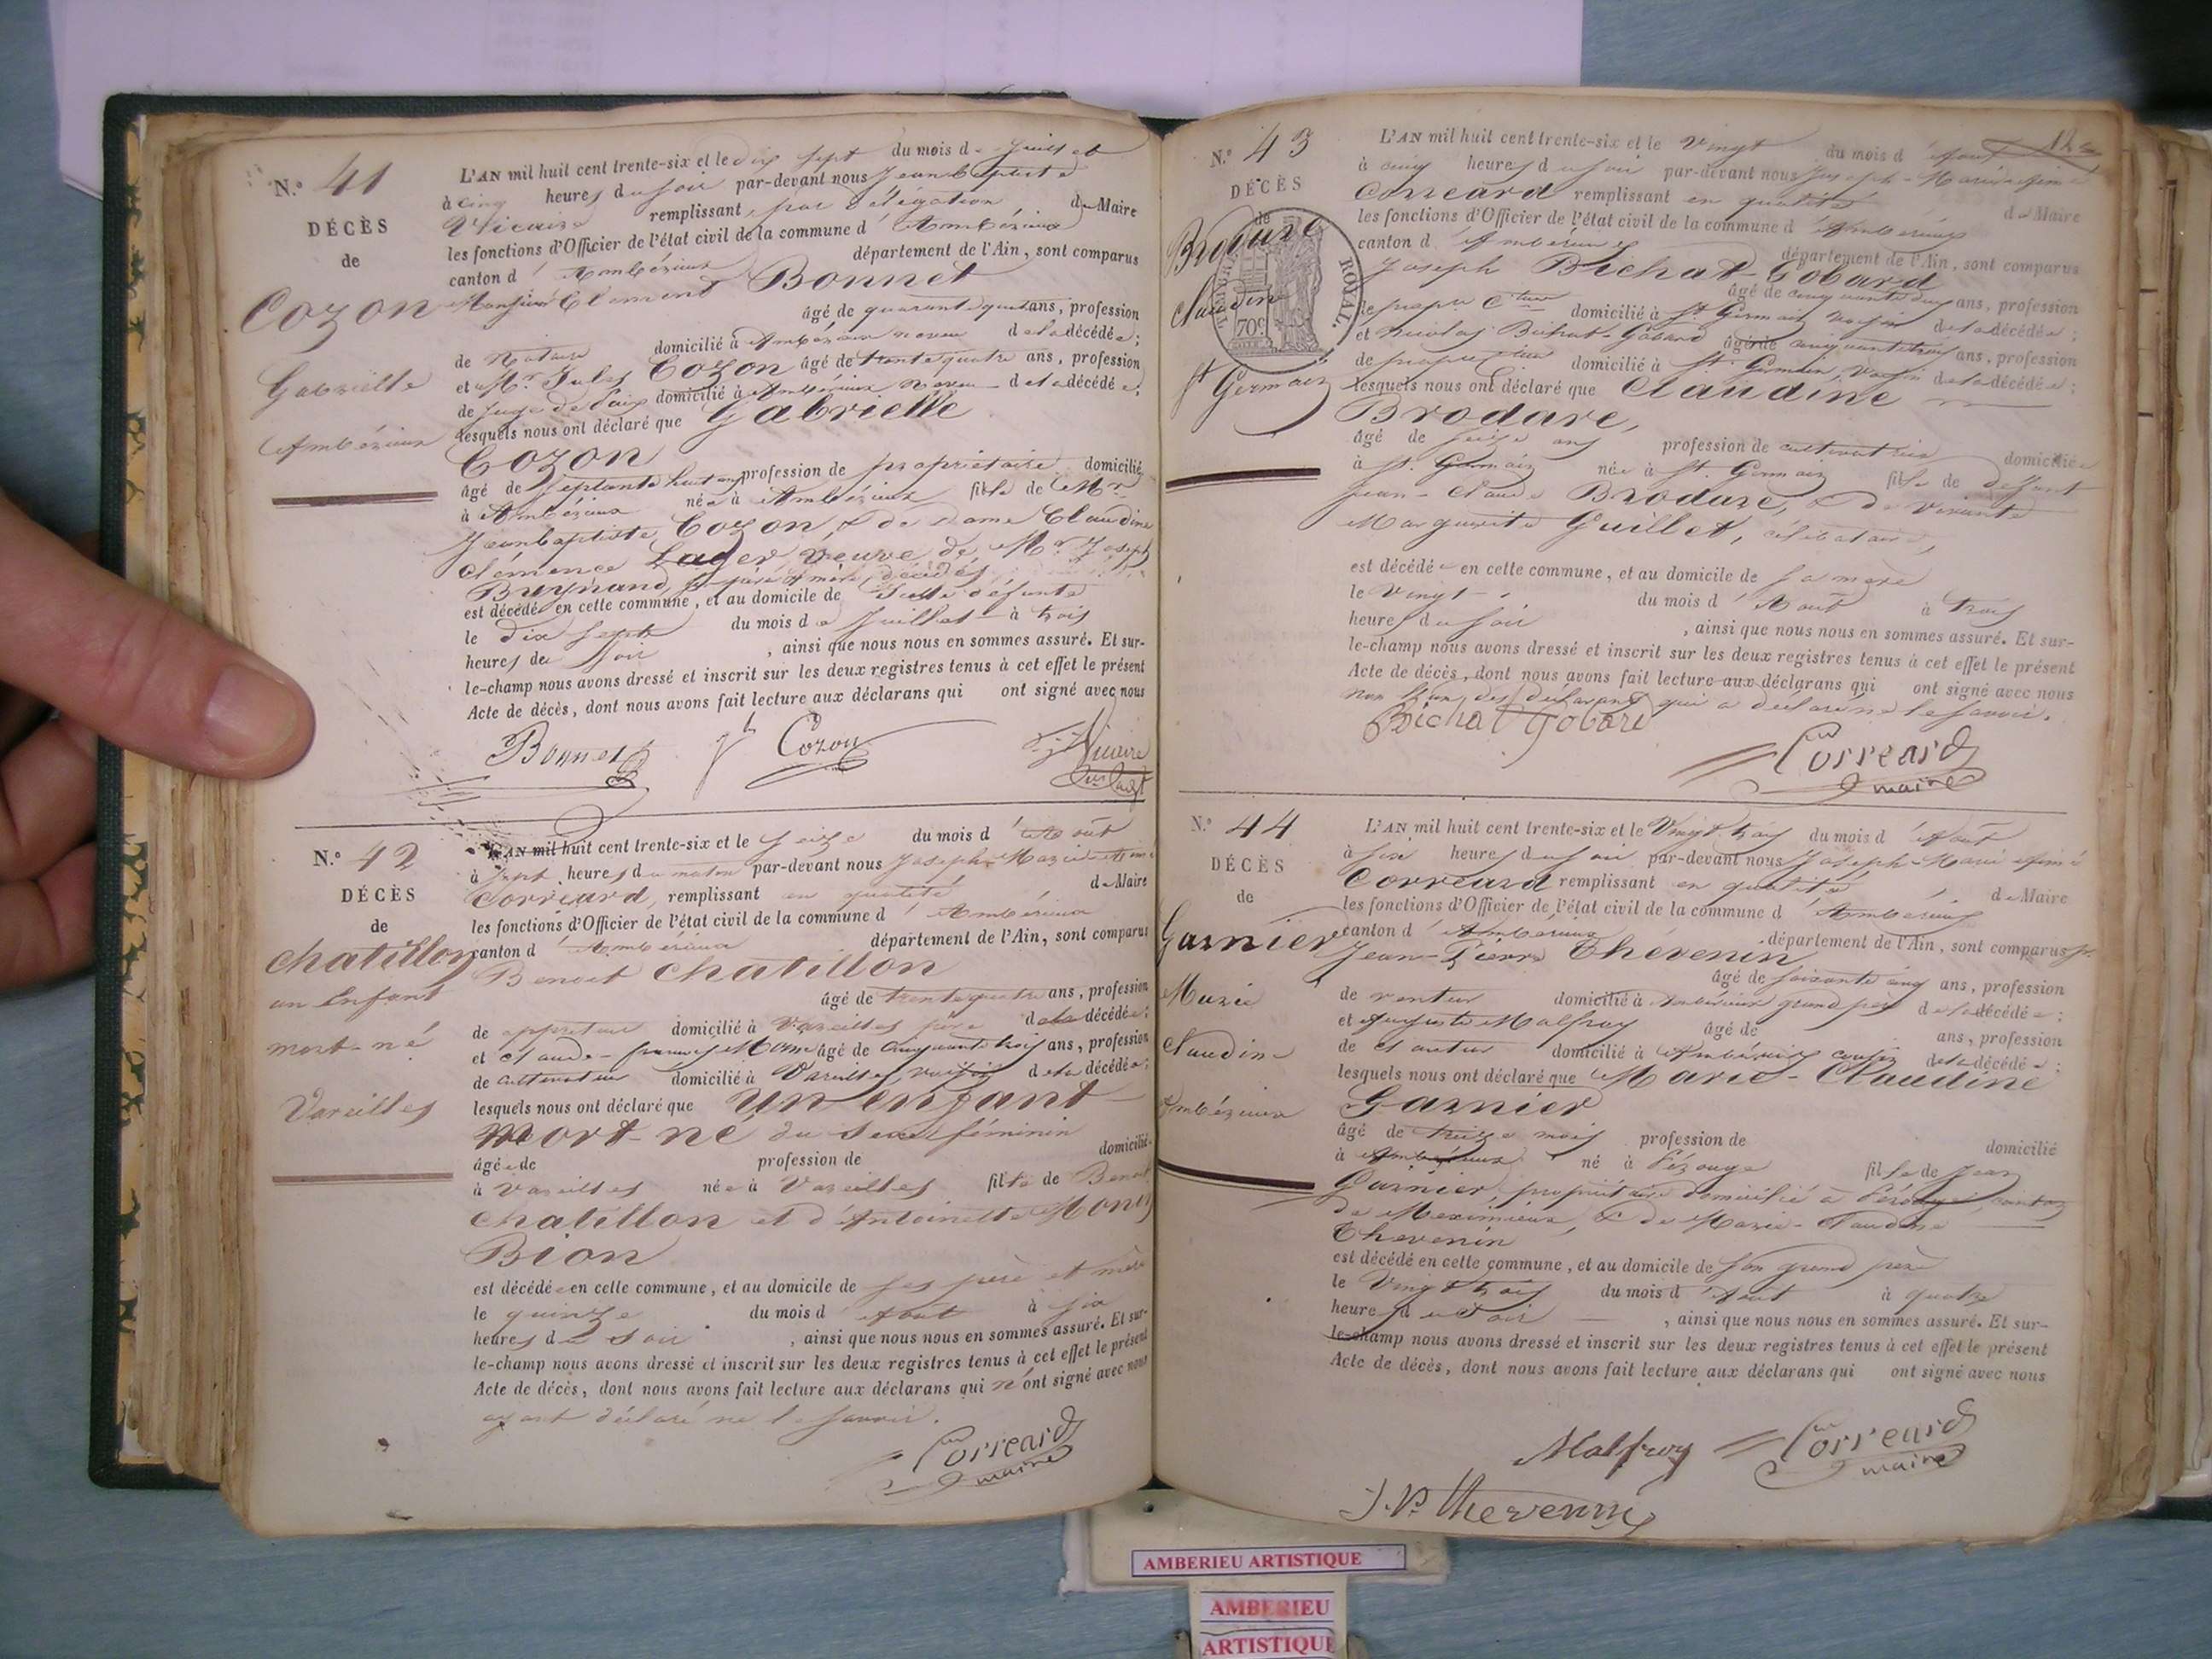 N.° 41
DÉCÈS
de
Cozon
Gabrielle
Ambérieux
L'AN mil huit cent trente-six et le dix sept du mois de Juillet
à cinq heures du soir par-devant nous Jean Baptiste
Vicaire remplissant, par délégation de Maire
les fonctions d'Officier de l'état civil de la commune d'Ambérieux
canton d'Ambérieux département de l'Ain, sont comparus
Monsieur Clement Bonnet
âgé de quarante quatre ans, profession
de Notaire domicilié à Ambérieux neveu de la décédée;
et Mr. Jules Cozon âgé de trente quatre ans, profession
de Juge de Paix domicilié à Ambérieux neveu de la décédée;
lesquels nous ont déclaré que Gabrielle
Cozon
âgé de septante huit ans profession de propriétaire domicilié
à Ambérieux née à Ambérieux fille de Mr.
Jean Baptiste Cozon, & de dame Claudine
Clémence Lager veuve de Mr. Joseph
Bruynand, ses père & mère décédés
est décédée en cette commune, et au domicile de ladite défunte
le dix sept du mois de Juillet à trois
heures du soir, ainsi que nous nous en sommes assuré. Et sur-
le-champ nous avons dressé et inscrit sur les deux registres tenus à cet effet le présent
Acte de décès, dont nous avons fait lecture aux déclarans qui ont signé avec nous
Bonnet Jh Cozon Vicaire
N.° 42
DÉCÈS
de
Chatillon
un Enfant
mort-né
Vareilles
L'AN mil huit cent trente-six et le seize du mois d'Août
à sept heures du matin par-devant nous Joseph-Marie-Aimé
Corréard, remplissant en qualité de Maire
les fonctions d'Officier de l'état civil de la commune d'Ambérieux
canton d'Ambérieux département de l'Ain, sont comparus
Benoit Chatillon
âgé de trente quatre ans, profession
de domicilié à Vareilles père de la décédée;
et Claude-françois âgé de cinquante trois ans, profession
de cultivateur domicilié à Vareilles, voisin de la décédée;
lesquels nous ont déclaré que un enfant
mort-né du sexe féminin
âgée de profession de domicilié
à Vareilles née à Vareilles fille de Benoit
Chatillon et d'Antoinette
Bion
est décédée en cette commune, et au domicile de ses père et mère
le quinze du mois d'Août à six
heures du soir, ainsi que nous nous en sommes assuré. Et sur-
le-champ nous avons dressé et inscrit sur les deux registres tenus à cet effet le présent
Acte de décès, dont nous avons fait lecture aux déclarans qui n'ont signé avec nous
ayant déclaré ne le savoir.
Corréard
maire
N.° 43
DÉCÈS
de
Brodure
Claudine
St Germain
ROYAL.
70c
L'AN mil huit cent trente-six et le Vingt du mois d'Août
à cinq heures du soir par-devant nous Joseph-Marie-Aimé
Corréard remplissant en qualité de Maire
les fonctions d'Officier de l'état civil de la commune d'Ambérieux
canton d'Ambérieux département de l'Ain, sont comparus
Joseph Bichat-Gobard
âgé de cinquante deux ans, profession
de propre. domicilié à St Germain voisin de la décédée;
et Nicolas Bichat-Gobard âgé de cinquante trois ans, profession
de domicilié à St. Germain, voisin de la décédée;
lesquels nous ont déclaré que Claudine
Brodare,
âgé de seize ans profession de cultivatrice domiciliée
à St. Germain née à St. Germain fille de deffunt
Jean-Claude Brodure, & de vivante
Marguerite Guillet, célibataire,
est décédée en cette commune, et au domicile de sa mère
le Vingt du mois d'Août à trois
heures du soir, ainsi que nous nous en sommes assuré. Et sur-
le-champ nous avons dressé et inscrit sur les deux registres tenus à cet effet le présent
Acte de décès, dont nous avons fait lecture aux déclarans qui ont signé avec nous
non l'un des déclarans qui a déclaré ne le savoir.
Bichat Gobard
Corréard
maire
N.° 44
DÉCÈS
de
Garnier
Marie
Claudine
Ambérieux
L'AN mil huit cent trente-six et le Vingt trois du mois d'Août
à six heures du soir par-devant nous Joseph-Marie Aimé
Corréard remplissant en qualité de Maire
les fonctions d'Officier de l'état civil de la commune d'Ambérieux
canton d'Ambérieux département de l'Ain, sont comparus
Jean-Pierre Thévenin
âgé de soixante cinq ans, profession
de rentier domicilié à Ambérieux grand père de la décédée;
et Auguste Malfroy âgé de ans, profession
de domicilié à Ambérieux cousin de la décédée;
lesquels nous ont déclaré que Marie-Claudine
Garnier
âgé de treize mois profession de domicilié
à Ambérieux né à Pérouge fille de Jean
Garnier, propriétaire domicilié à Pérouge, canton
de Meximieux, & de Marie-Claudine
Thévenin
est décédé en cette commune, et au domicile de son grand père
le Vingt trois du mois d'Août à quatre
heures du soir, ainsi que nous nous en sommes assuré. Et sur-
le-champ nous avons dressé et inscrit sur les deux registres tenus à cet effet le présent
Acte de décès, dont nous avons fait lecture aux déclarans qui ont signé avec nous
Malfroy Corréard
maire
J.P. Thevenin
AMBERIEU ARTISTIQUE
AMBERIEU
ARTISTIQUE